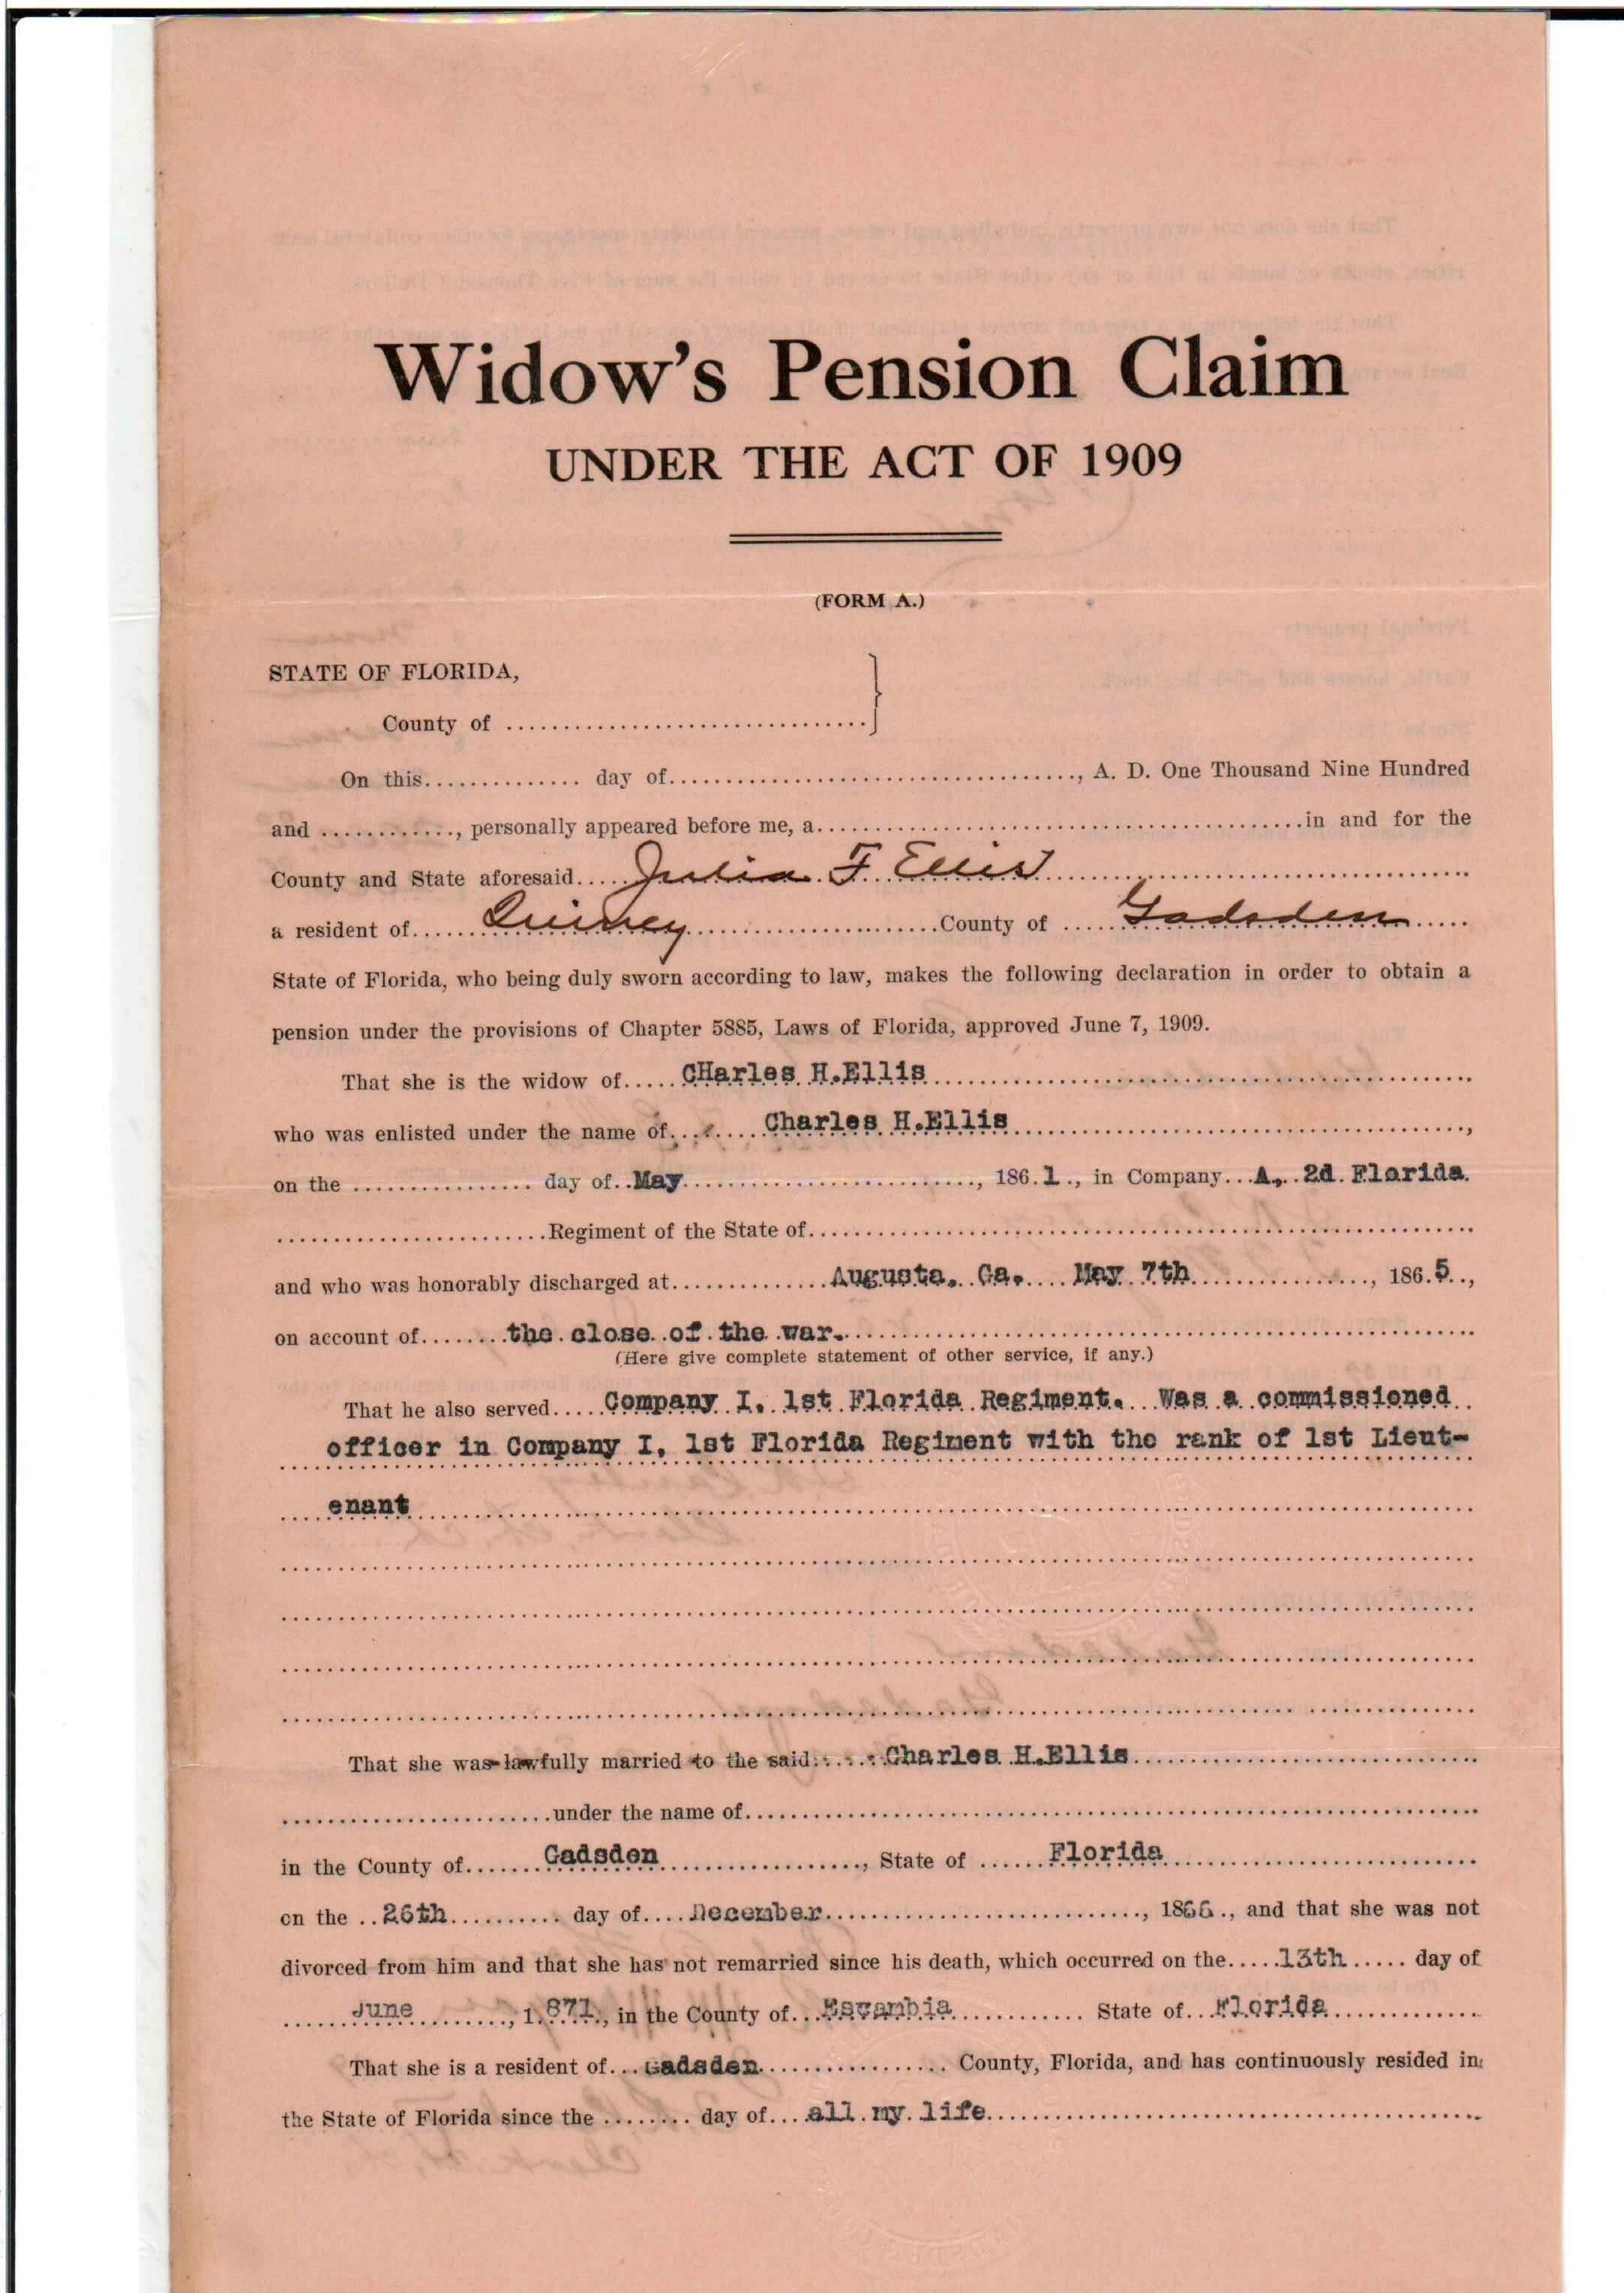 Widow's Pension Claim
UNDER THE ACT OF 1909
(FORM A.)
STATE OF FLORIDA,
County of
On this day of , A. D. One Thousand Nine Hundred
and , personally appeared before me, a in and for the
County and State aforesaid Julia F. Ellis
a resident of Quincy County of Gadsden
State of Florida, who being duly sworn according to law, makes the following declaration in order to obtain a
pension under the provisions of Chapter 5885, Laws of Florida, approved June 7, 1909.
That she is the widow of CHarles H.Ellis
who was enlisted under the name of Charles H.Ellis ,
on the day of May , 1861, in Company A, 2d Florida
Regiment of the State of
and who was honorably discharged at Augusta, Ga. May 7th , 1865,
on account of the close of the war.
(Here give complete statement of other service, if any.)
That he also served Company I, 1st Florida Regiment. Was a commissioned
officer in Company I, 1st Florida Regiment with the rank of 1st Lieut-
enant
That she was lawfully married to the said Charles H.Ellis
under the name of
in the County of Gadsden , State of Florida
on the 26th day of December , 1866, and that she was not
divorced from him and that she has not remarried since his death, which occurred on the 13th day of
June , 1871, in the County of Escambia State of Florida
That she is a resident of Gadsden County, Florida, and has continuously resided in
the State of Florida since the day of all my life